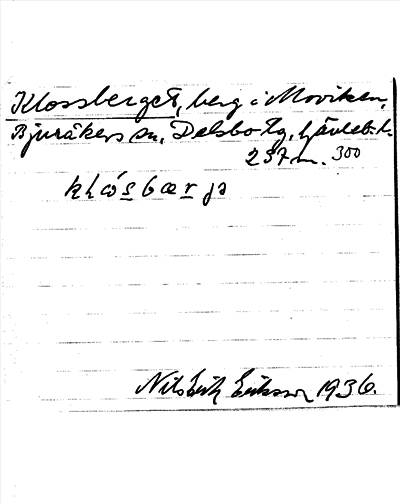 Klossberget, berg i Moviken,
Bjuråkers sn, Delsbo tg, Gävleb. l.
257 m. 300
Nils Erik Eriksson 1936.